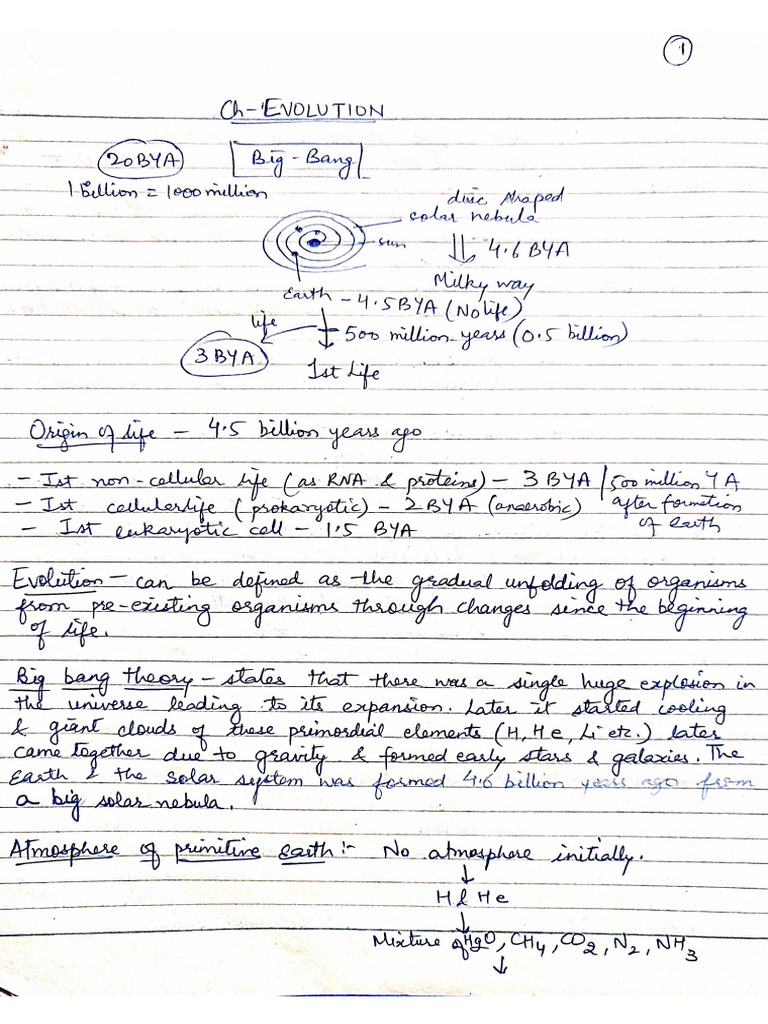 1
Ch- EVOLUTION
20BYA Big-Bang
1 Billion = 1000 million
disc shaped
solar nebula
sun 4.6 BYA
Milky way
Earth - 4.5BYA (No life)
life 500 million years (0.5 billion)
3 BYA
1st Life
Origin of life - 4.5 billion years ago
- Ist non-cellular life (as RNA & proteins) - 3 BYA / 500 million YA
- Ist cellular life (prokaryotic) - 2 BYA (anaerobic) after formation
- Ist eukaryotic cell - 1.5 BYA of earth
Evolution - can be defined as the gradual unfolding of organisms
from pre-existing organisms through changes since the beginning
of life.
Big bang theory - states that there was a single huge explosion in
the universe leading to its expansion. Later it started cooling
& giant clouds of these primordial elements (H, He, Li etc.) later
came together due to gravity & formed early stars & galaxies. The
Earth & the solar system was formed 4.6 billion years ago from
a big solar nebula.
Atmosphere of primitive earth:- No atmosphere initially.
↓
H & He
↓
Mixture of HgO, CH4, CO2, N2, NH3
↓